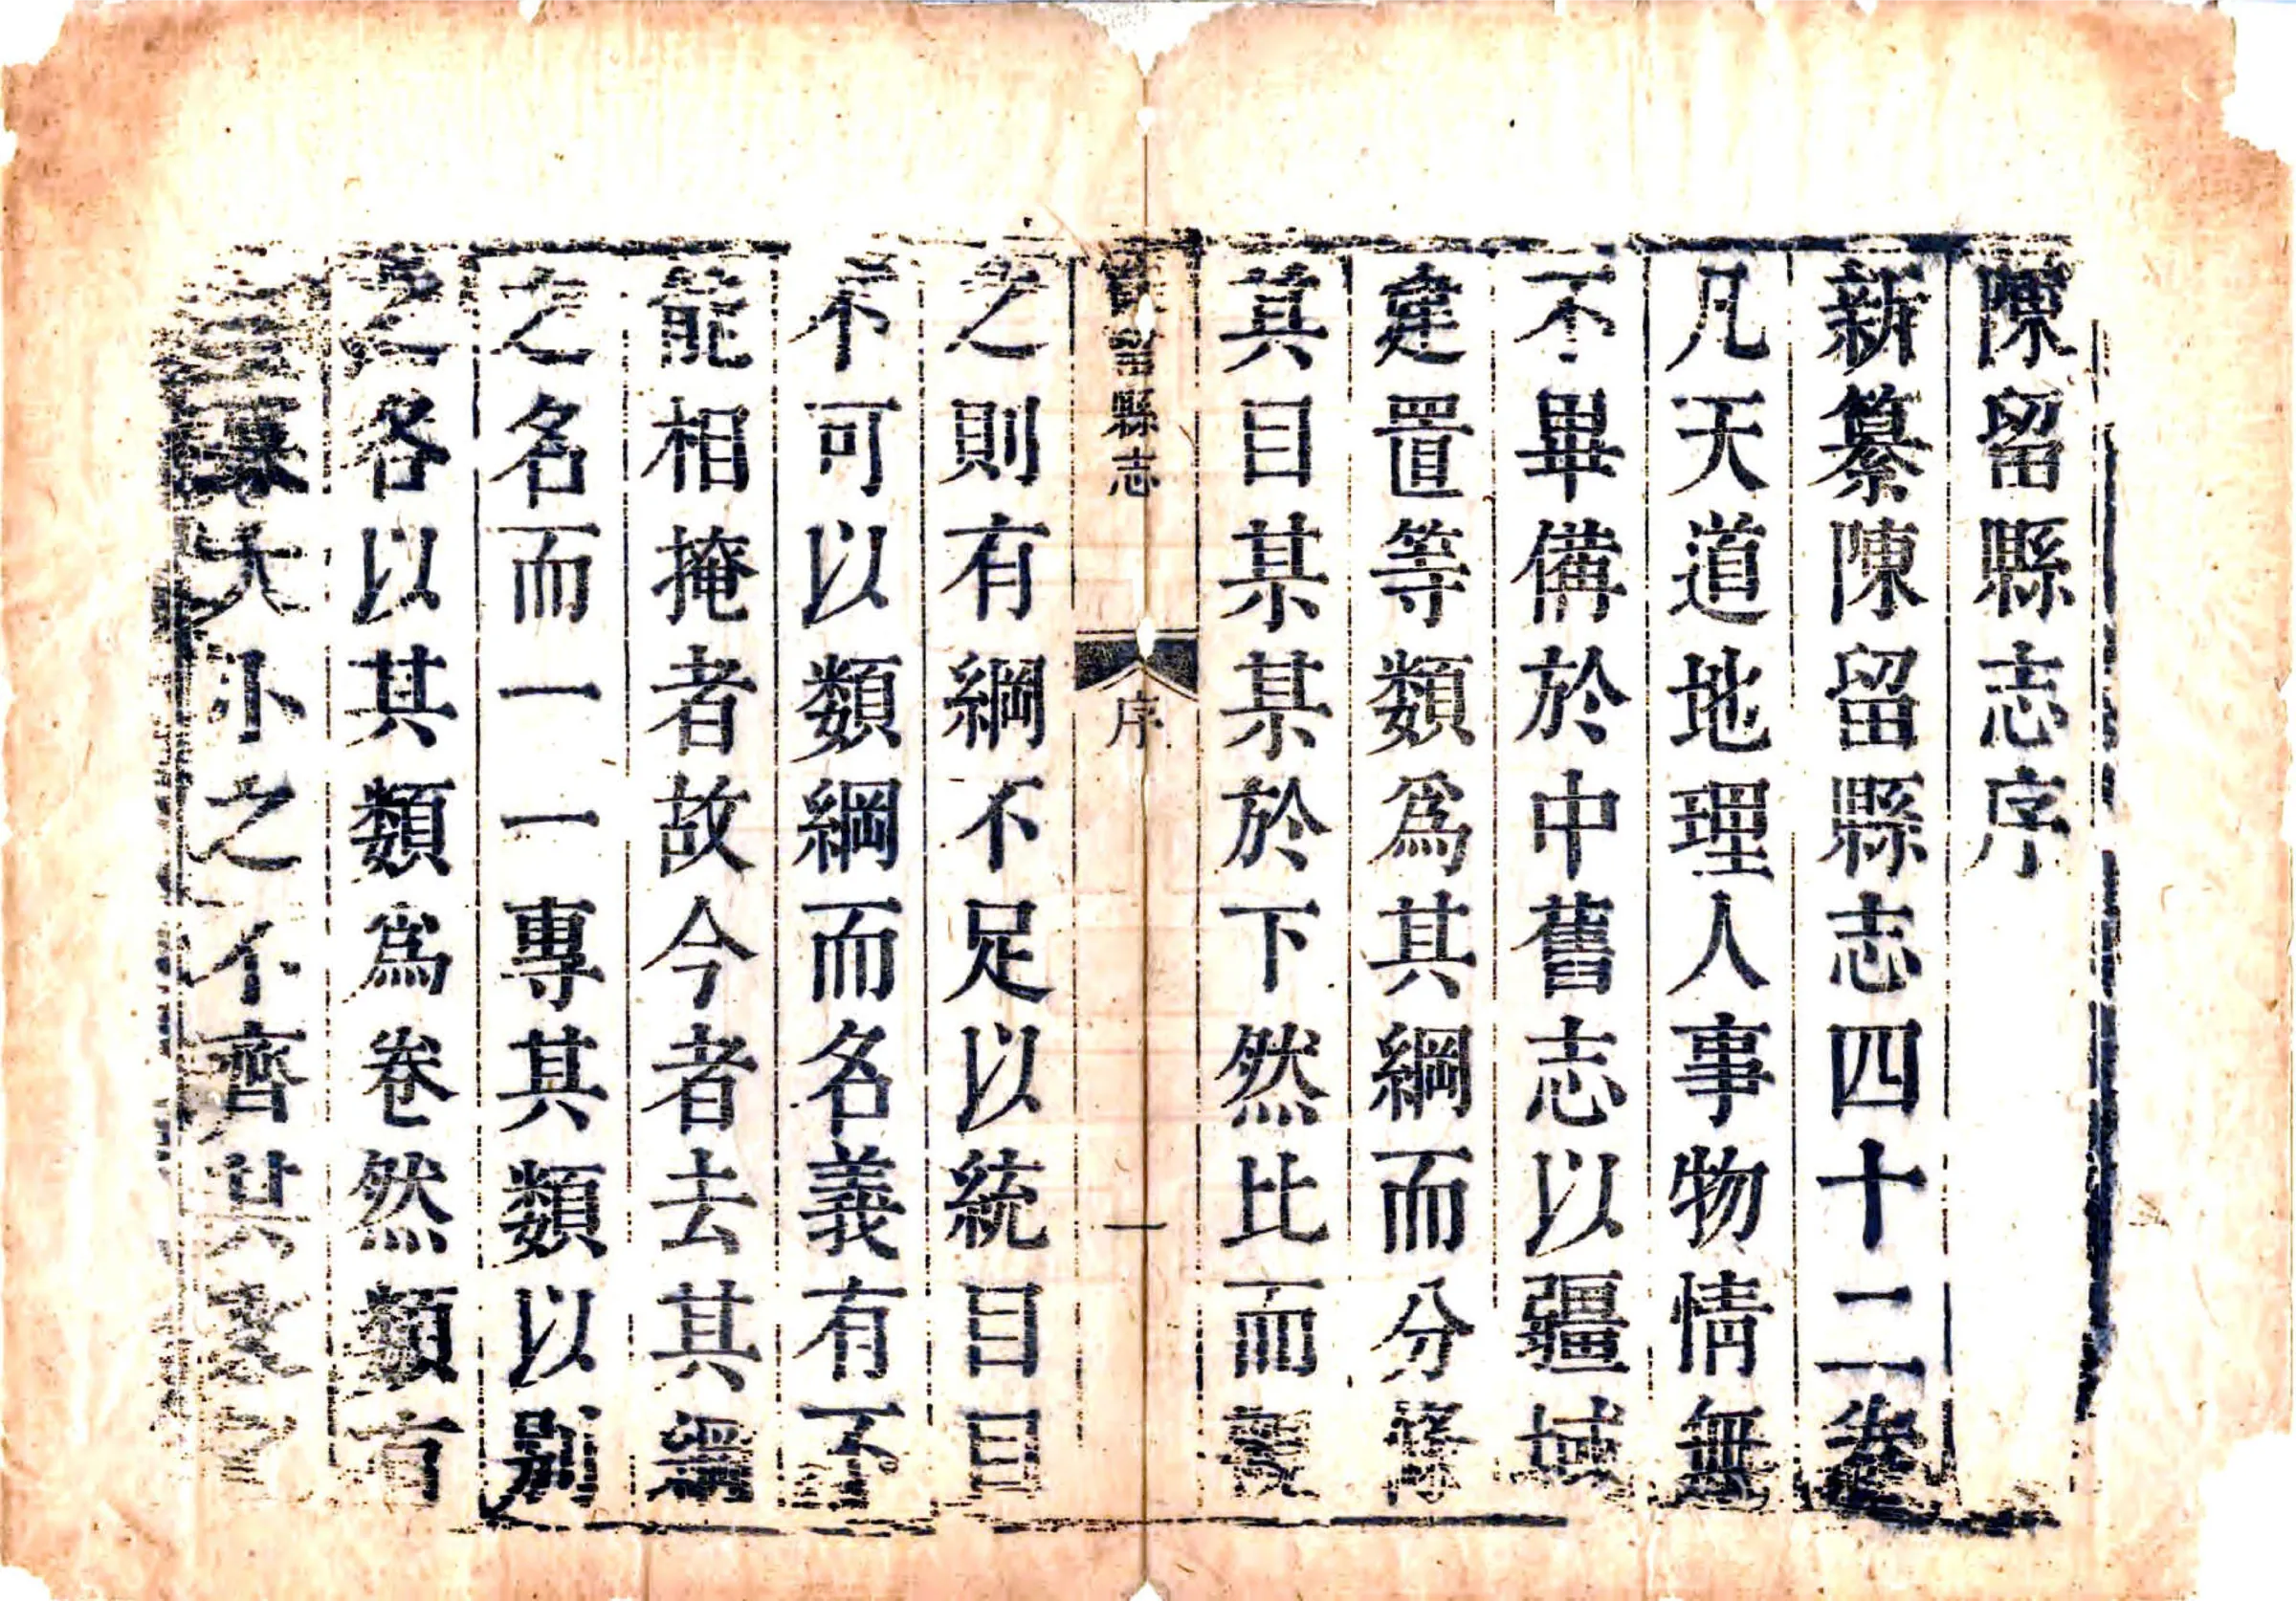 陳留縣志序
新纂陳留縣志四十二卷
凡天道地理人事物情無
不畢備於中舊志以疆域
建置等類爲其綱而分條
其目某某於下然比而覈
留縣志
序
一
之則有綱不足以統目目
不可以類綱而名義有不
能相掩者故今者去其綱
之名而一一專其類以別
之各以其類爲卷然類有
大小之不齊其